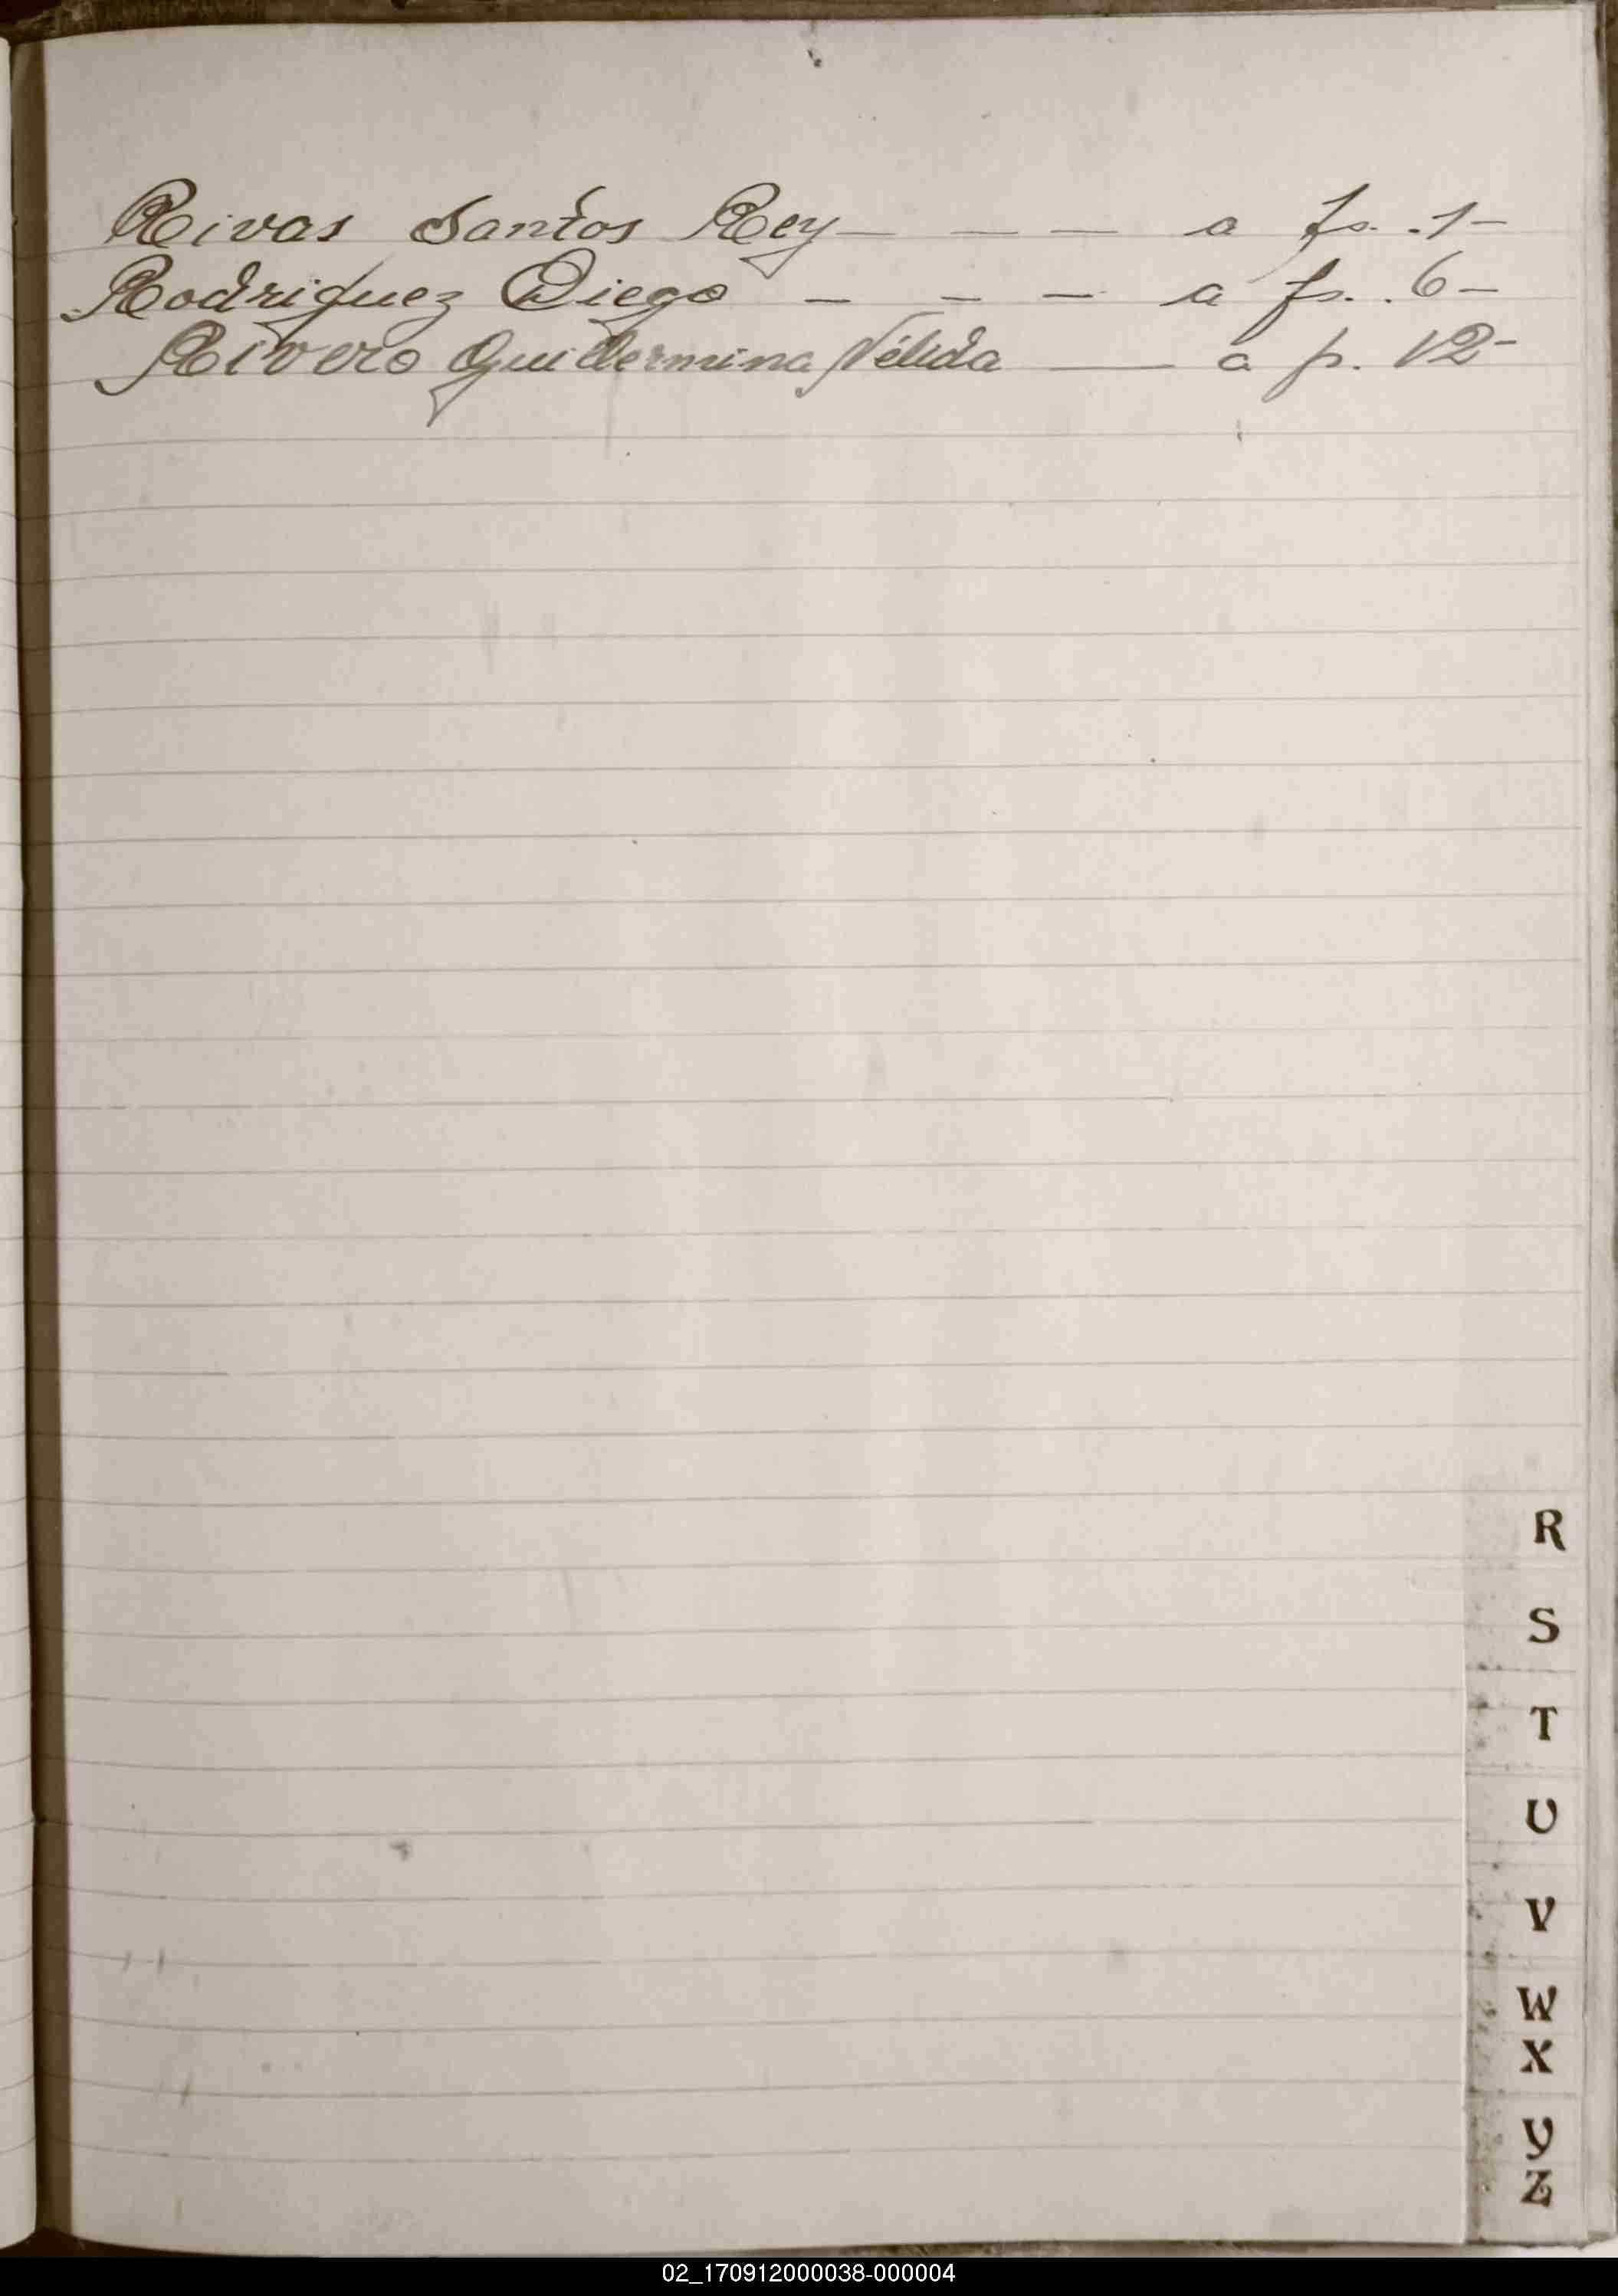 Rivas Santos Rey — — — a fs. 1-
Rodriguez Diego — — — a fs. 6-
Rivero Guillermina Nélida — a fs. 12-
R
S
T
U
V
W
X
Y
Z
02_170912000038-000004